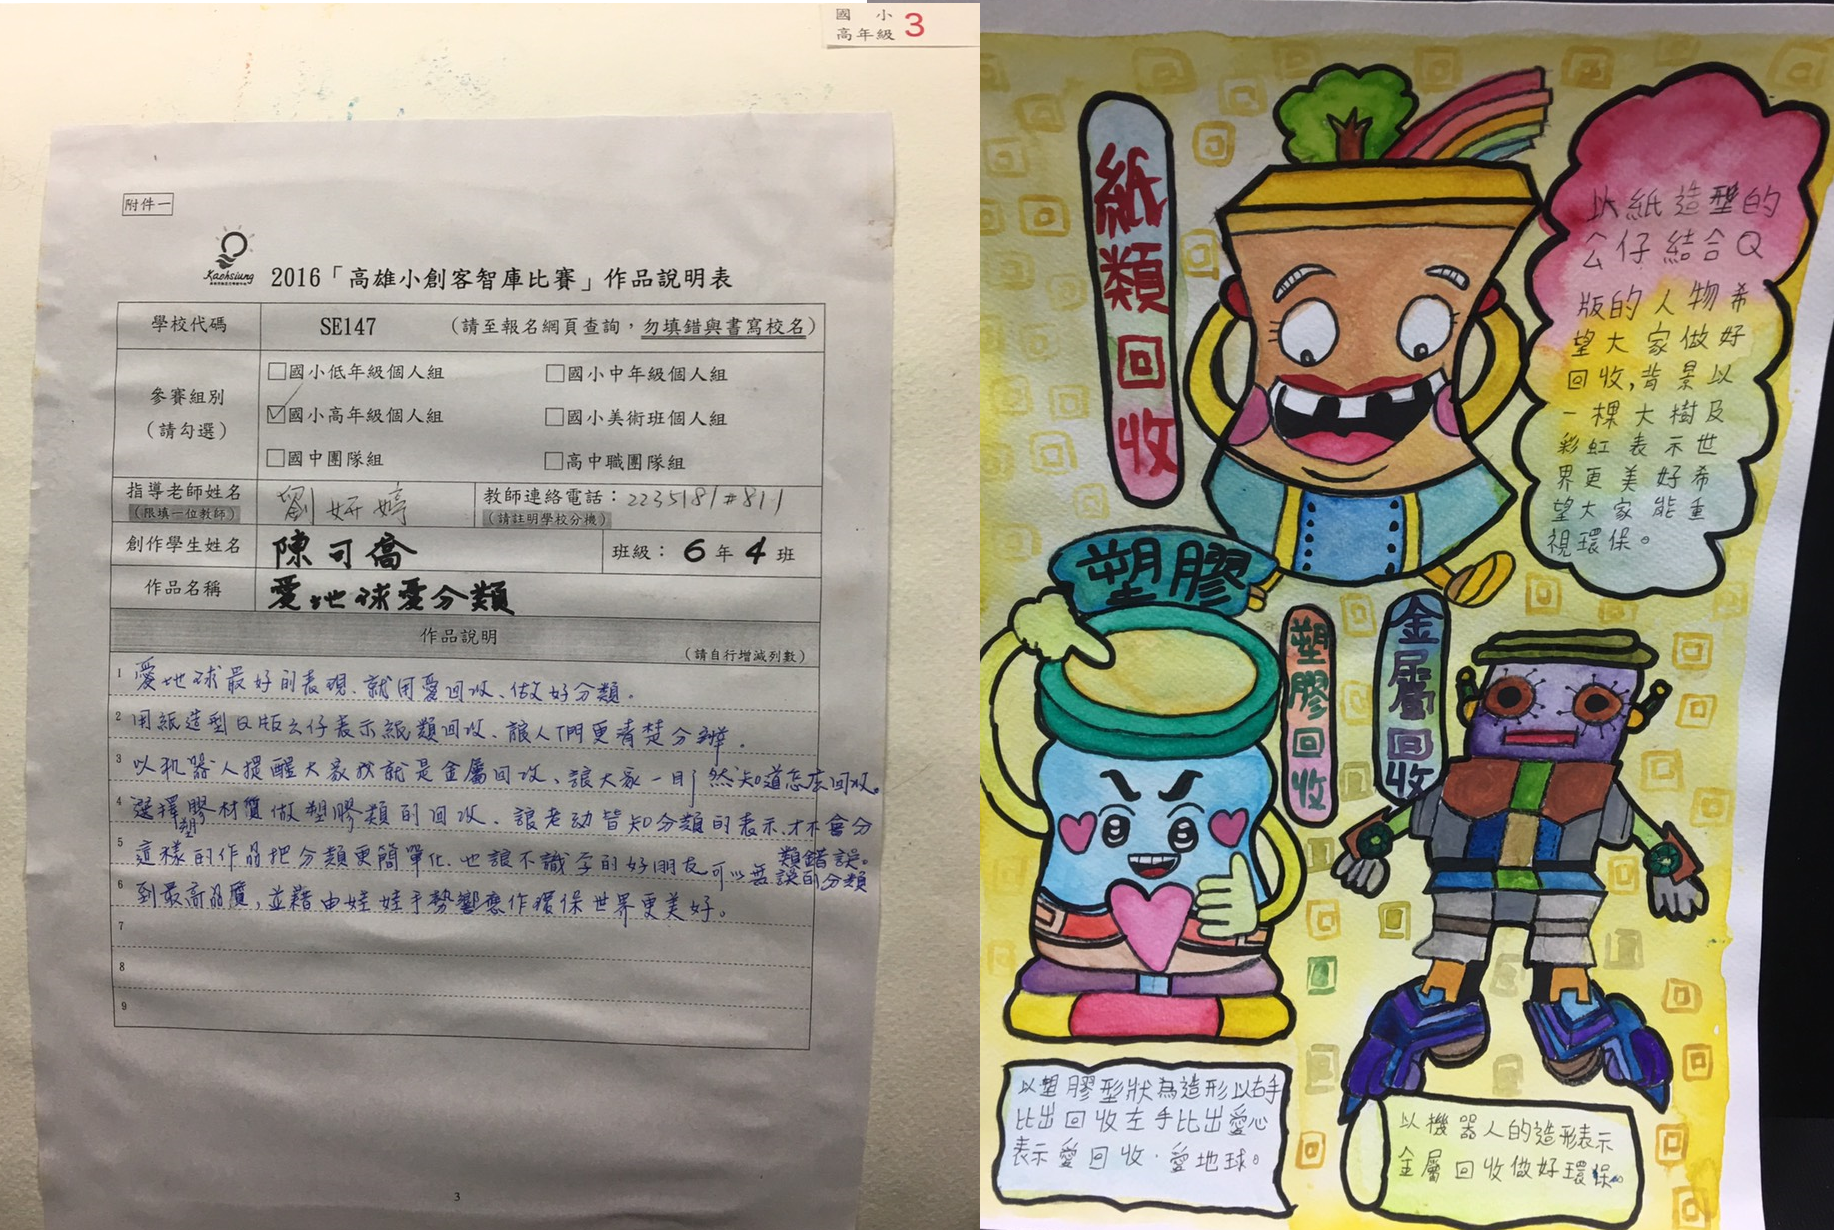 國 小
高年級 3
附件一
Kaohsiung
2016「高雄小創客智庫比賽」作品說明表
學校代碼 SE147 （請至報名網頁查詢，勿填錯與書寫校名）
參賽組別
（請勾選）
□國小低年級個人組 □國小中年級個人組
☑國小高年級個人組 □國小美術班個人組
□國中團隊組 □高中職團隊組
指導老師姓名 劉妍婷 教師連絡電話：2235181#811
（限填一位教師） （請註明學校分機）
創作學生姓名 陳可喬 班級：6年4班
作品名稱 愛地球愛分類
作品說明
（請自行增減列數）
1 愛地球最好的表現、就用愛回收、做好分類。
2 用紙造型Q版公仔表示紙類回收、讓人們更清楚分辨。
3 以机器人提醒大家我就是金屬回收、讓大家一目了然知道怎麼回收。
4 選擇塑膠材質做塑膠類的回收、讓老幼皆知分類的表示、才不會分
類錯誤。
5 這樣的作品把分類更簡單化、也讓不識字的好朋友可以無誤的分類
6 到最高品質，並藉由娃娃手勢響應作環保世界更美好。
7
8
9
3
紙類回收
以紙造型的
公仔結合Q
版的人物希
望大家做好
回收,背景以
一棵大樹及
彩虹表示世
界更美好希
望大家能重
視環保。
塑膠
塑膠回收
金屬回收
以塑膠形狀為造形以右手
比出回收左手比出愛心
表示愛回收．愛地球。
以機器人的造形表示
金屬回收做好環保。